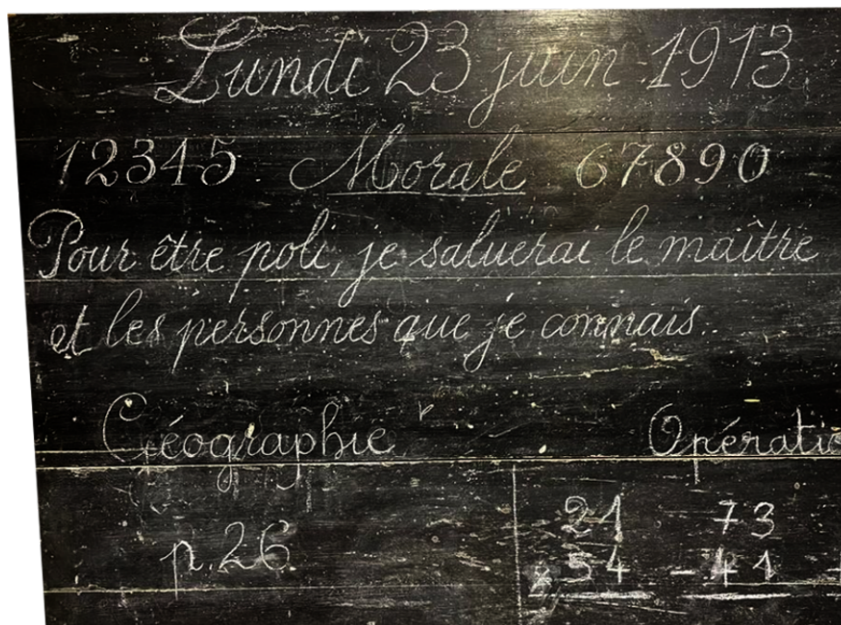 Lundi 23 juin 1913
12345 Morale 67890
Pour être poli, je saluerai le maître
et les personnes que je connais.
Géographie Opératio
p.26 21 73
x 54 - 41